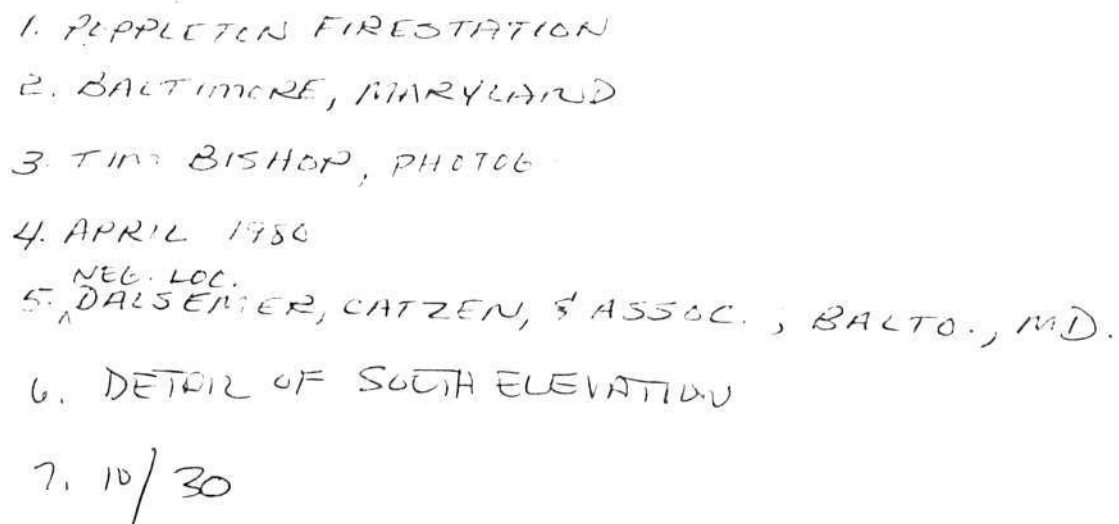 1. POPPLETON FIRESTATION
2. BALTIMORE, MARYLAND
3. TIM BISHOP, PHOTOG
4. APRIL 1980
NEG. LOC.
5. ^ DALSEMER, CATZEN, & ASSOC., BALTO., MD.
6. DETAIL OF SOUTH ELEVATION
7. 10/30